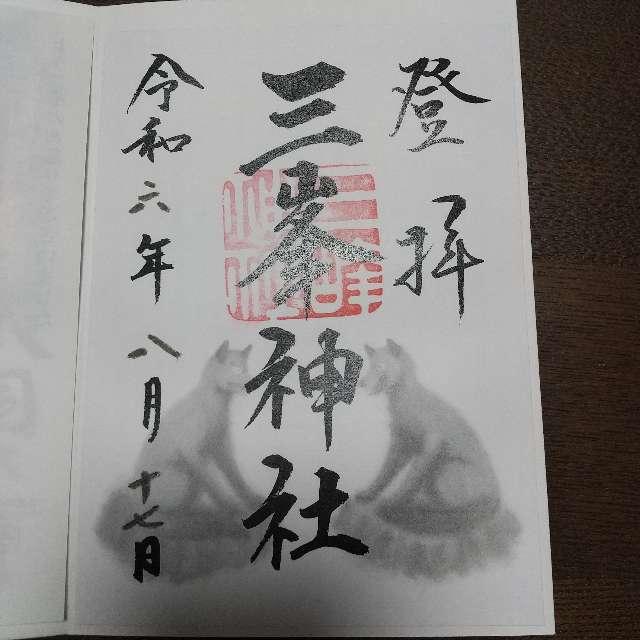 登拝
三峯神社
令和六年八月十七日